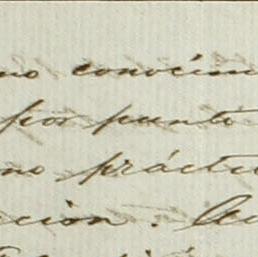 no conocim
por punto
no práctic
ción.